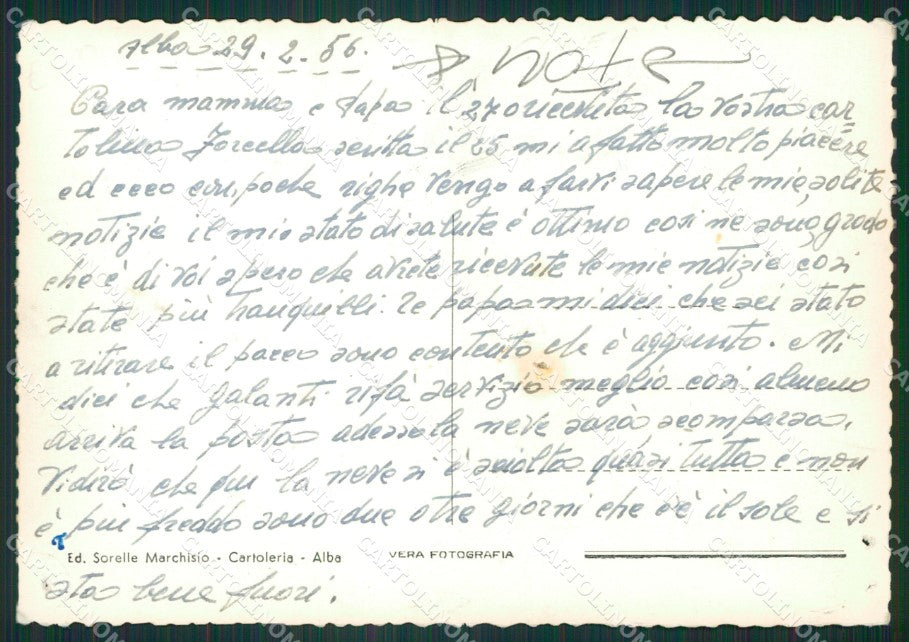 Alba 29.2.56.
Cara mamma e papa il 27 o ricevuto la vostra car
tolina Forcella scritta il 25 mi a fatto molto piacere
ed ecco con poche righe vengo a farvi sapere le mie solite
notizie il mio stato di salute è ottimo cosi ne sono, grado
che è di voi spero che avrete ricevute le mie notizie cosi
state più tranquilli. Te papa mi dici che sei stato
a ritirare il pacco sono contento che è aggiunto. Mi
dici che galanti rifà servizio meglio cosi almeno
arriva la posta adesso la neve sarà scomparsa.
Vi dirò che qui la neve si è sciolta quasi tutta e non
è più freddo sono due o tre giorni che c'è il sole e si
Ed. Sorelle Marchisio - Cartoleria - Alba VERA FOTOGRAFIA
sta bene fuori.